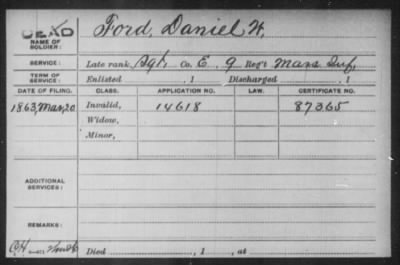 DEAD
NAME OF SOLDIER: Ford, Daniel H.
SERVICE: Late rank, Sgt. Co. E, 9 Reg't Mass Inf,
TERM OF SERVICE: Enlisted , 1 Discharged , 1
DATE OF FILING. CLASS. APPLICATION NO. LAW. CERTIFICATE NO.
1863, Mar, 20 Invalid, 14618 87365
Widow,
Minor,
ADDITIONAL SERVICES:
REMARKS:
Died , 1 , at